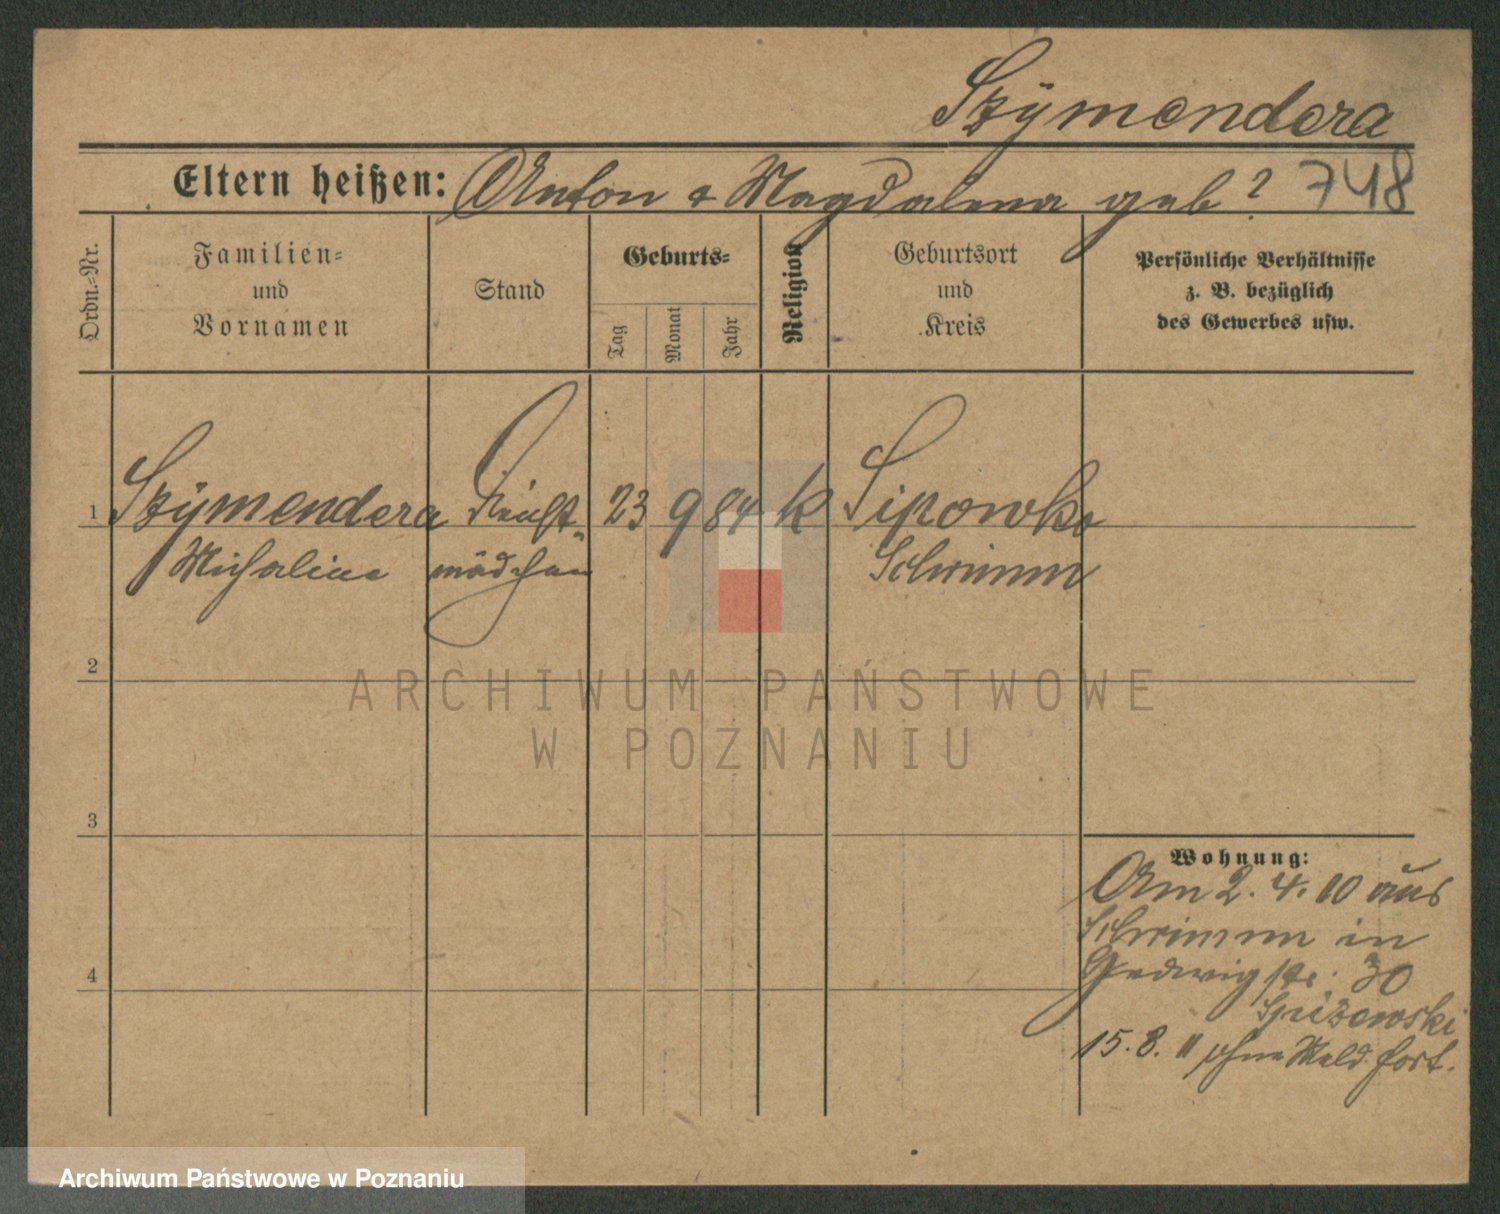 Szÿmendera
Eltern heißen: Anton & Magdalena geb ?
748
Ordn.=Nr.
Familien=
und
Vornamen
Stand
Geburts=
Tag
Monat
Jahr
Religion
Geburtsort
und
Kreis
Persönliche Verhältnisse
z. B. bezüglich
des Gewerbes usw.
1 Szÿmendera Dienst- 23 9 84 k Lipowko
Michalina mädchen Schrimm
2
3
4
Wohnung:
Am 2. 4. 10 aus
Schrimm in
Hedwigstr: 30
15. 8. " ohne Meld. fort.
ARCHIWUM PAŃSTWOWE
W POZNANIU
Archiwum Państwowe w Poznaniu